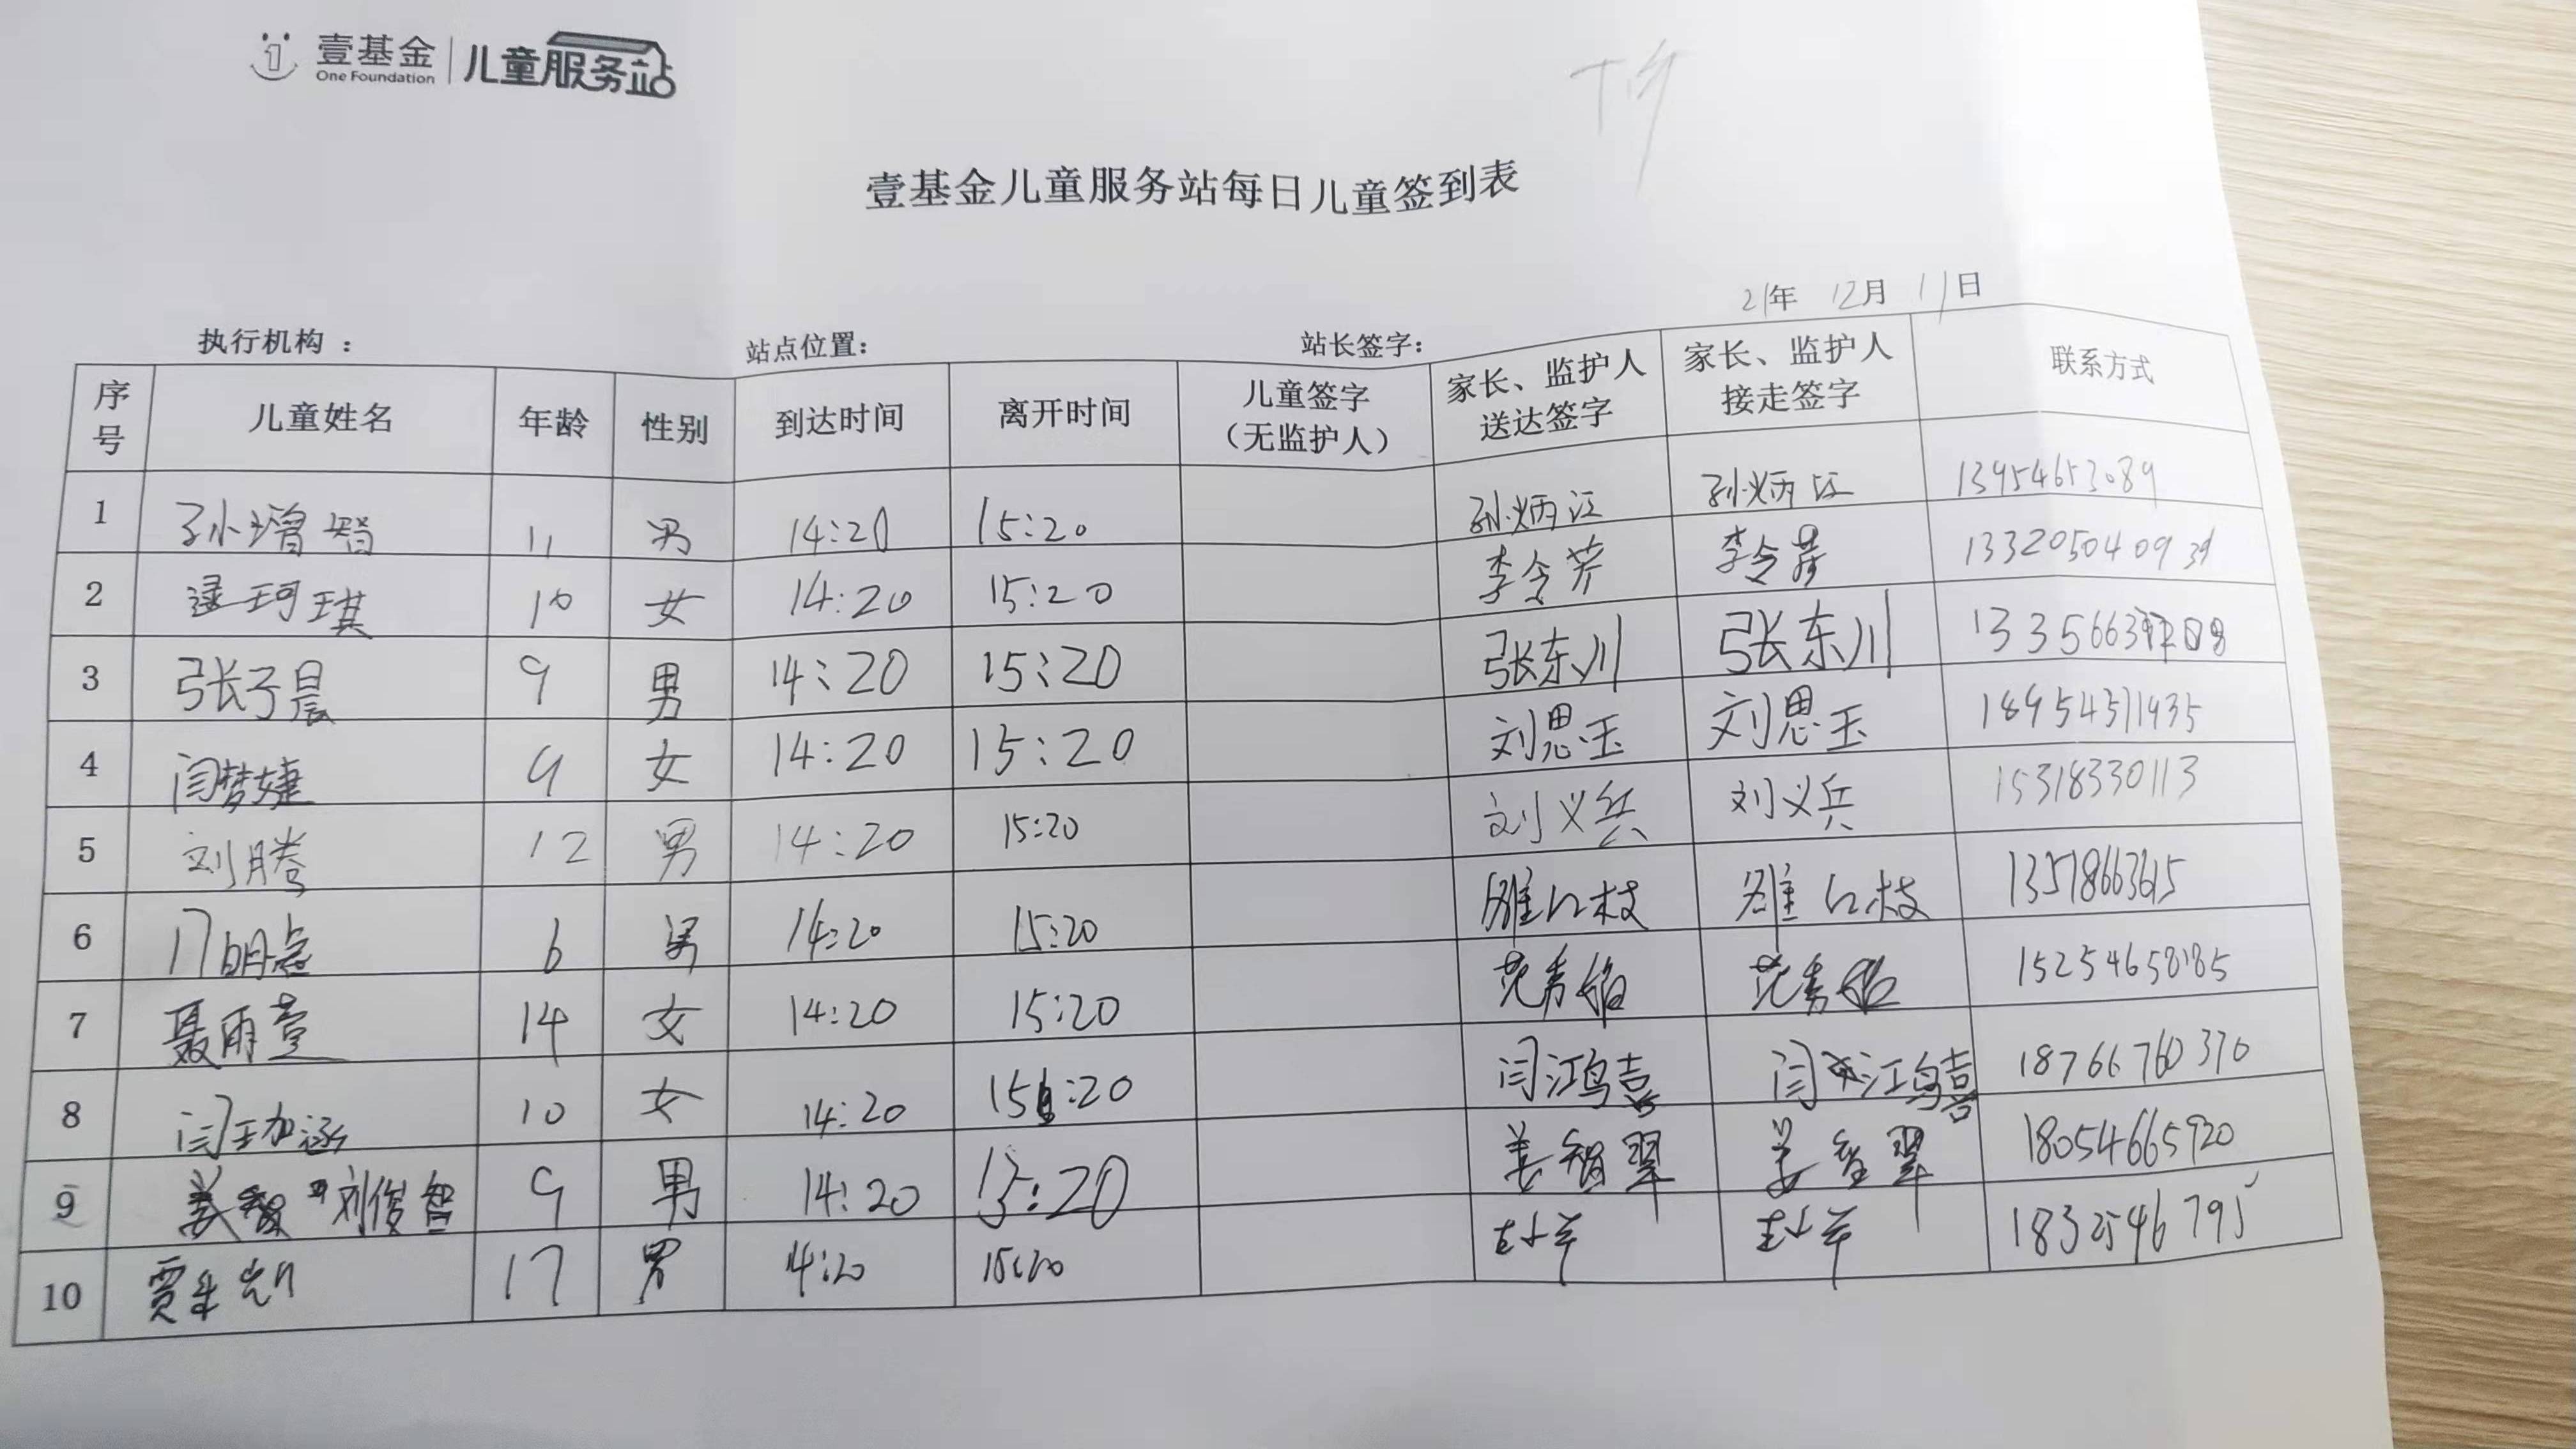 壹基金 儿童服务站
One Foundation
下午
壹基金儿童服务站每日儿童签到表
21年 12月 11日
执行机构： 站点位置： 站长签字：
序号 儿童姓名 年龄 性别 到达时间 离开时间 儿童签字（无监护人） 家长、监护人送达签字 家长、监护人接走签字 联系方式
1 孙增智 11 男 14:20 15:20 孙炳江 孙炳江 13954653089
2 逯珂琪 10 女 14:20 15:20 李令芹 李令芹
3 张子晨 9 男 14:20 15:20 张东川 张东川
4 闫梦婕 9 女 14:20 15:20 刘思玉 刘思玉 18954371435
5 刘腾 12 男 14:20 15:20 刘义兵 刘义兵 15318330113
6 6 男 14:20 15:20
7 聂雨萱 14 女 14:20 15:20 15254658185
8 闫珈涵 10 女 14:20 15:20 闫鸿喜 闫鸿喜 18766760370
9 刘俊智 9 男 14:20 15:20 姜智翠 姜智翠 18054665920
10 17 男 14:20 15:20